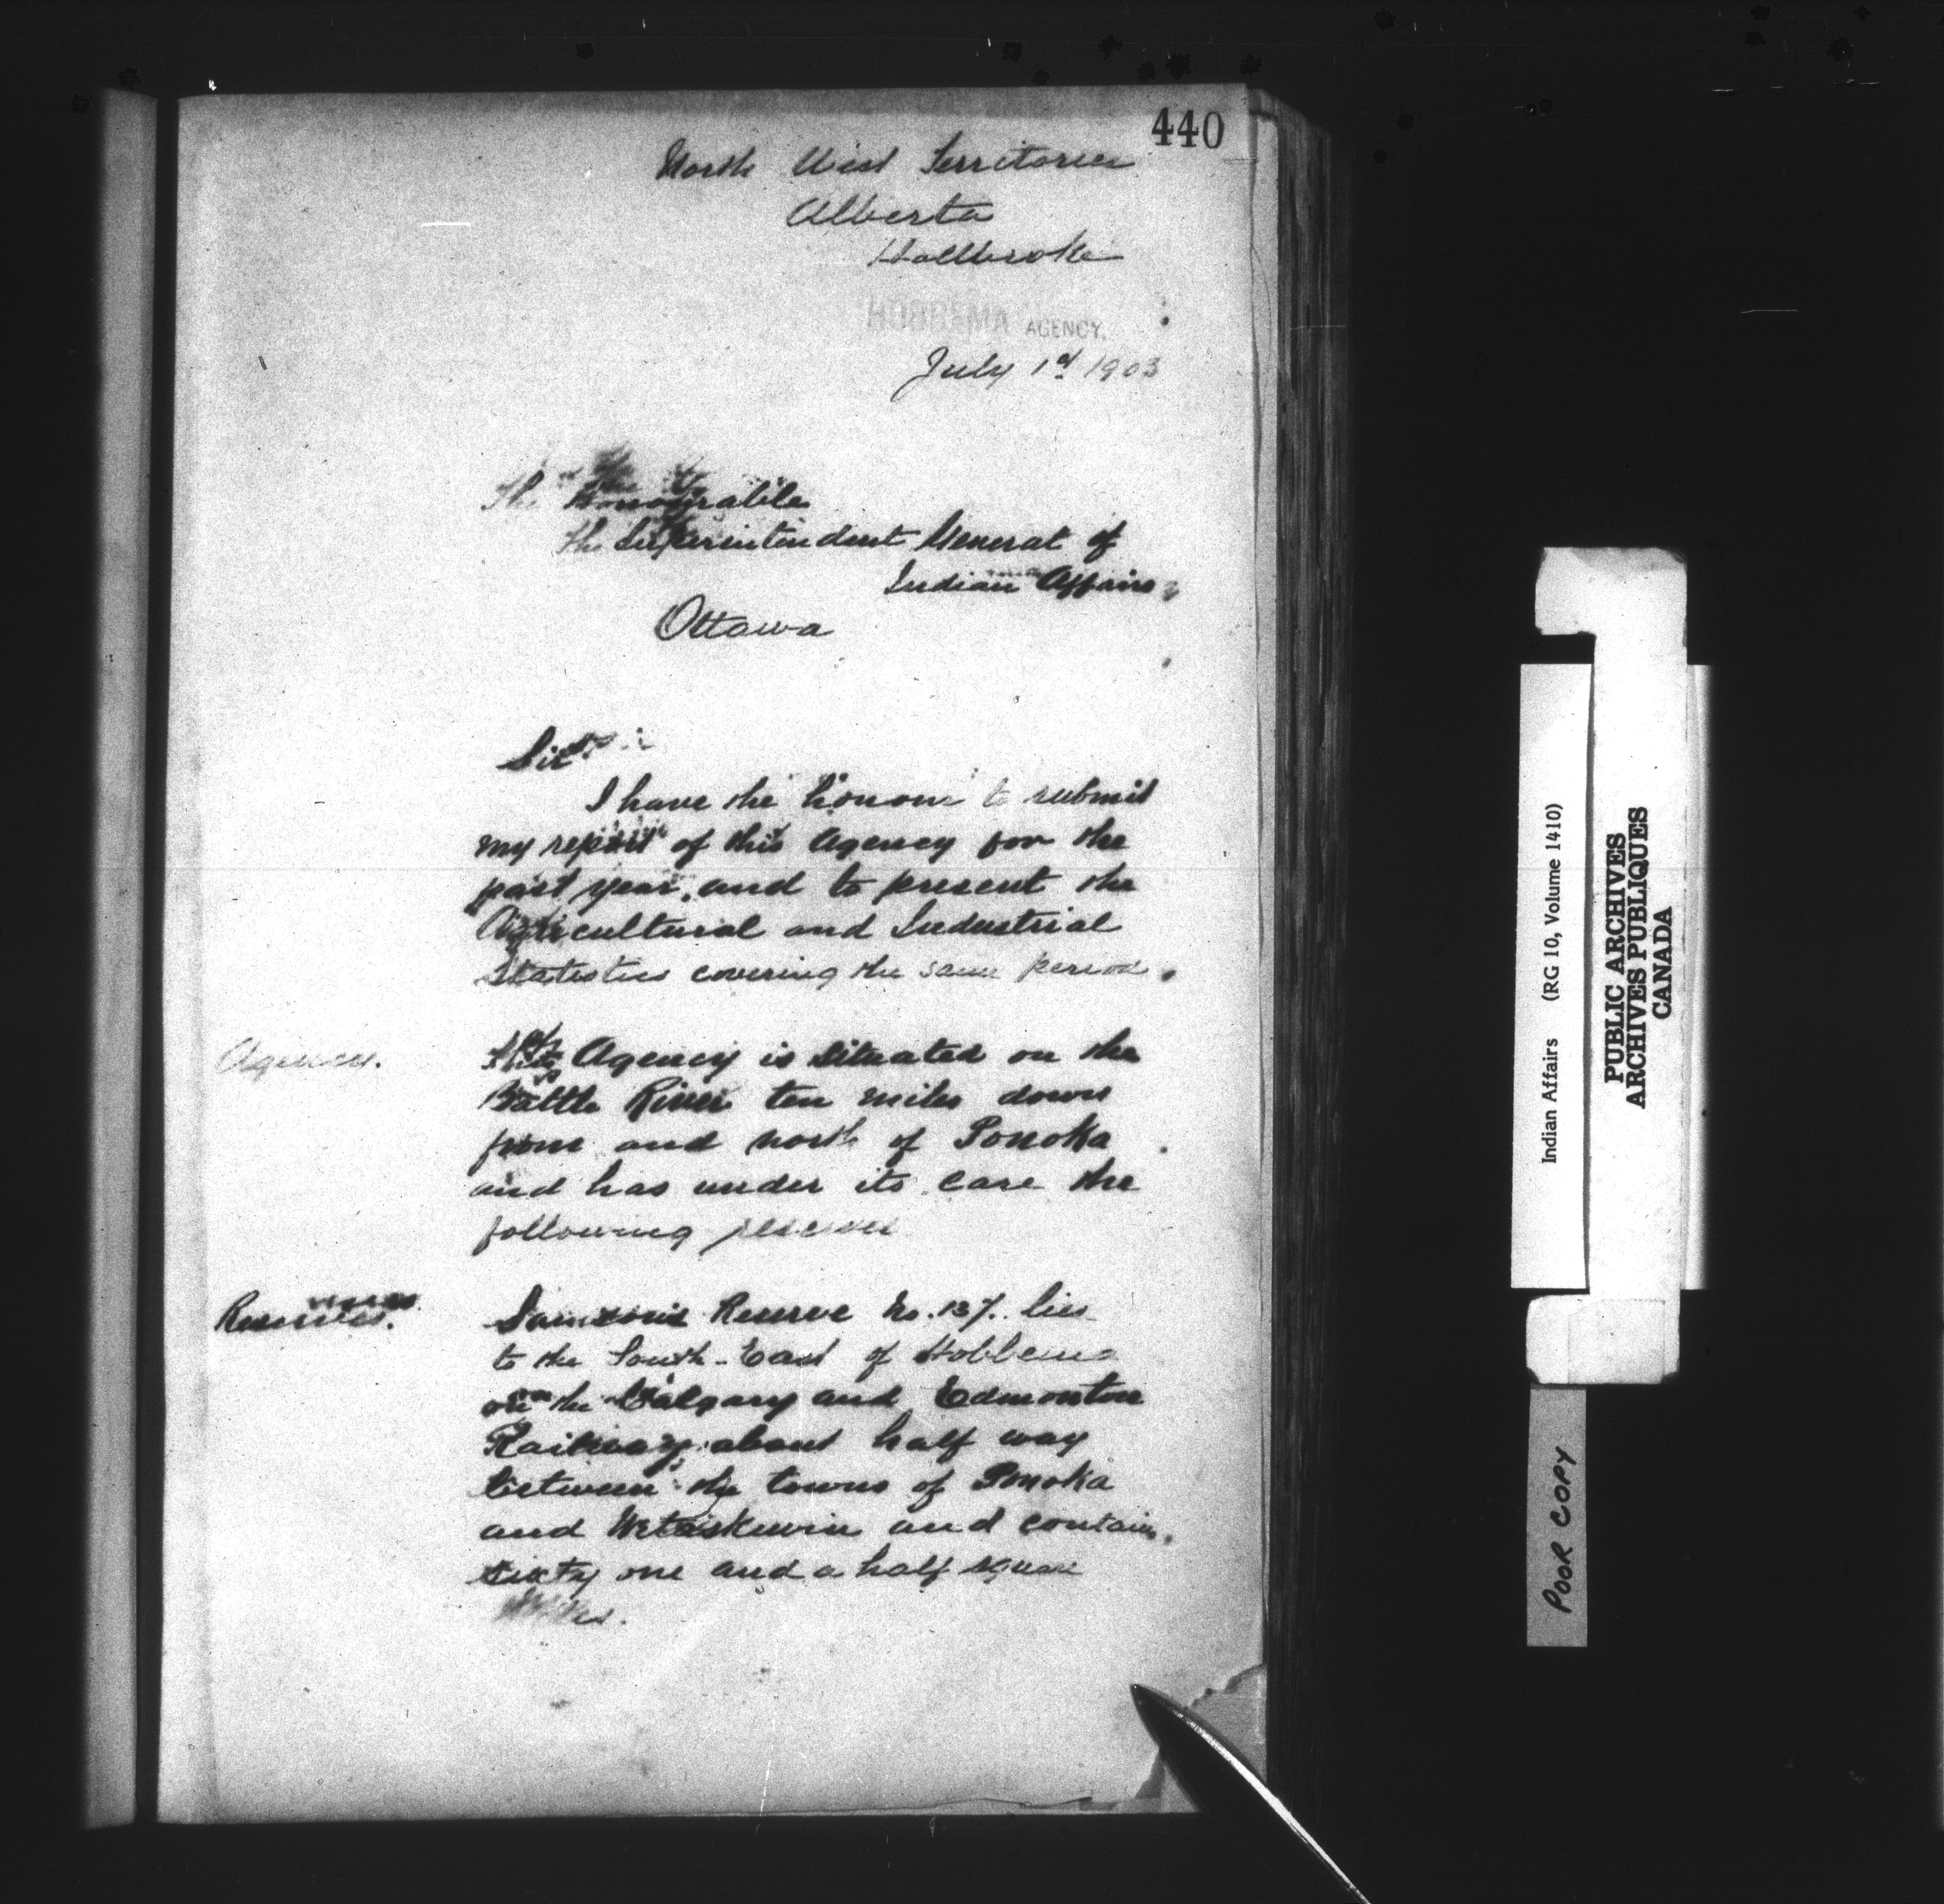 440
North West Territories
Alberta
Hollbroke
HOBBEMA AGENCY,
July 1st 1903
The Honourable
The Superintendent General of
Indian Affairs,
Ottawa
Sir:
I have the honour to submit
my report of this Agency for the
past year, and to present the
Agricultural and Industrial
Statistics covering the same period.
Agency.
This Agency is situated on the
Battle River ten miles down
from and north of Ponoka
and has under its care the
following reserves
Reserves.
Samson's Reserve No. 137. lies
to the South-East of Hobbema
on the Calgary and Edmonton
Railway about half way
between the towns of Ponoka
and Wetaskiwin and contains
sixty one and a half square
Miles.
Indian Affairs (RG 10, Volume 1410)
PUBLIC ARCHIVES
ARCHIVES PUBLIQUES
CANADA
POOR COPY